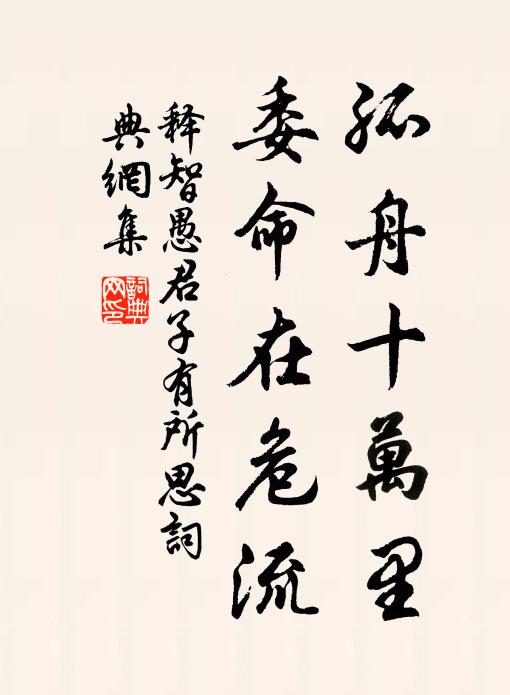 孤舟十萬里
委命在危流
释智愚君子有所思詞
典網集
詞典網印